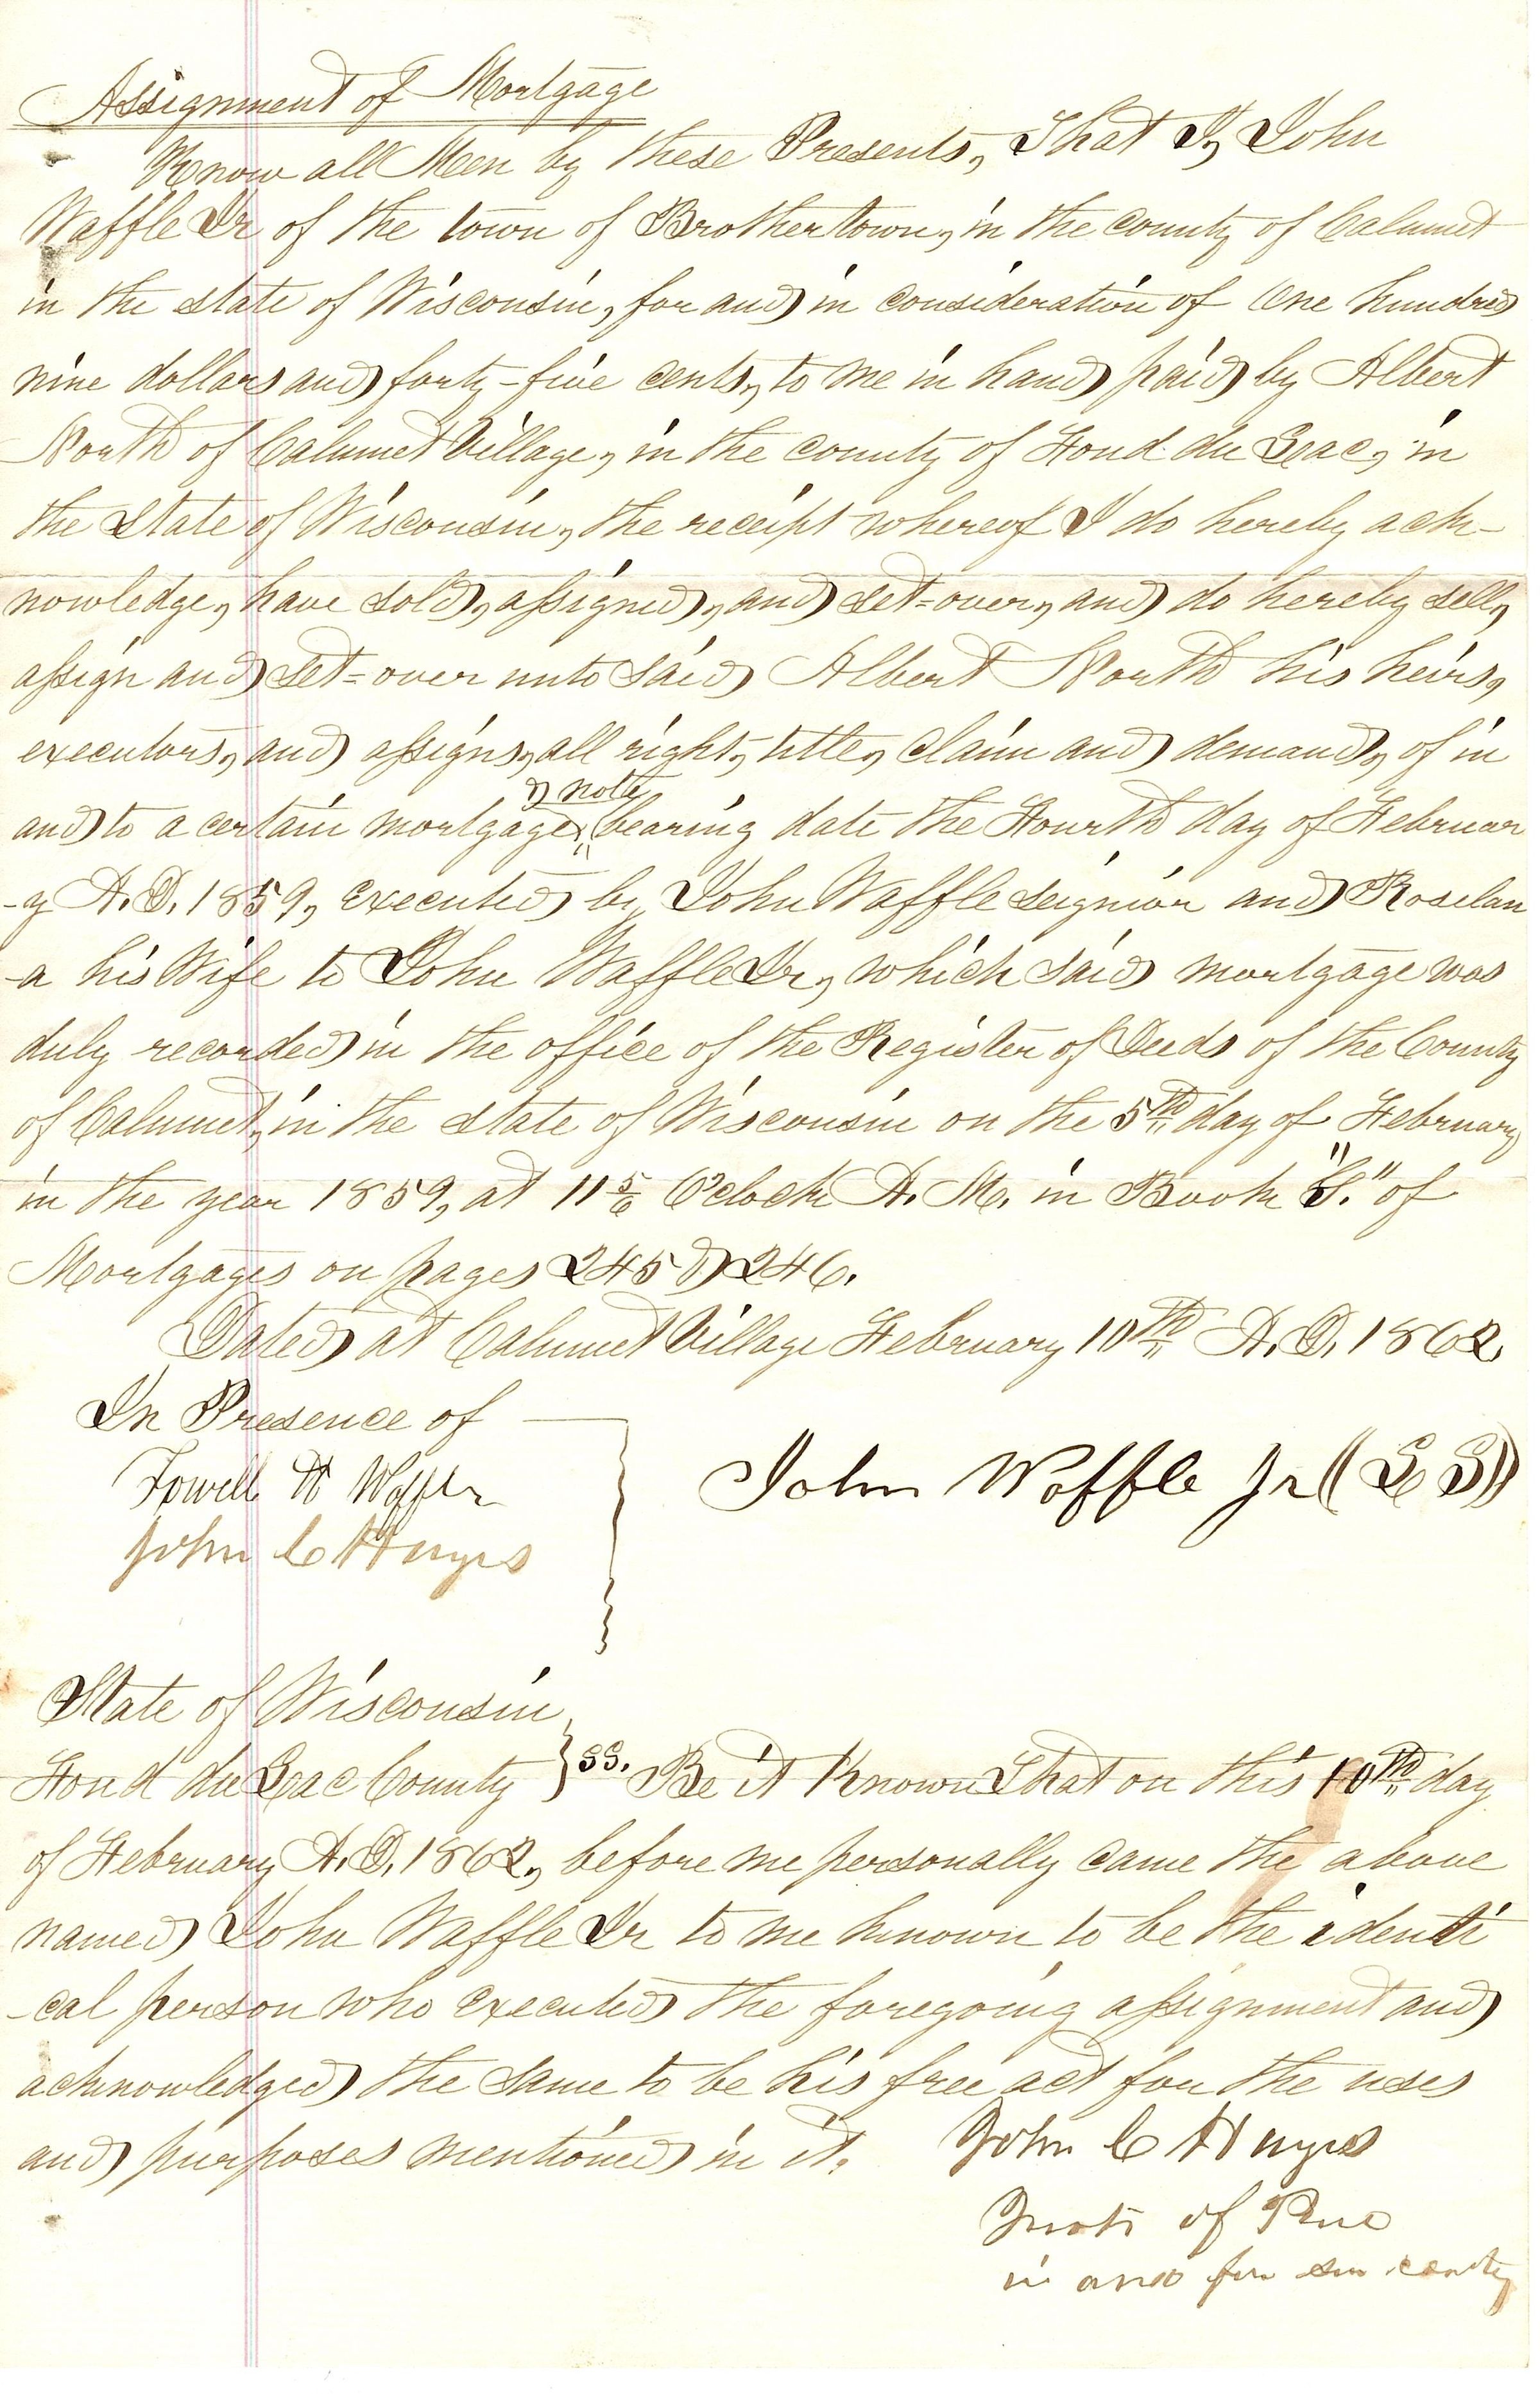 Assignment of Mortgage
Know all Men by these Presents, That I, John
Waffle Jr of the town of Brothertown, in the county of Calumet
in the state of Wisconsin, for and in consideration of One hundred
nine dollars and forty-five cents, to me in hand paid by Albert
North of Calumet Village, in the county of Fond du Lac, in
the State of Wisconsin, the receipt whereof I do hereby ack-
nowledge, have sold, assigned, and set=over, and do hereby sell,
assign and set=over unto said Albert North his heirs,
executors, and assigns, all right, title, claim and demand, of in
& note
and to a certain mortgage, bearing date the Fourth day of Februar
-y A.D. 1859, executed by John Waffle seignior and Roselan
-a his Wife to John Waffle Jr, which said mortgage was
duly recorded in the office of the Register of Deeds of the County
of Calumet, in the state of Wisconsin on the 5th day of February
in the year 1859, at 11 5/6 Oclock A.M. in Book "S." of
Mortgages on pages 245 & 246.
Dated at Calumet Village February 10th A.D. 1862
In Presence of
H
John C
John Waffle Jr (L S)
State of Wisconsin
Fond du Lac County } ss. Be it Known That on this 10th day
of February A.D. 1862, before me personally came the above
named John Waffle Jr to me known to be the identi
-cal person who executed the foregoing assignment and
acknowledged the same to be his free act for the uses
and purposes mentioned in it.
John C
of
in and for county